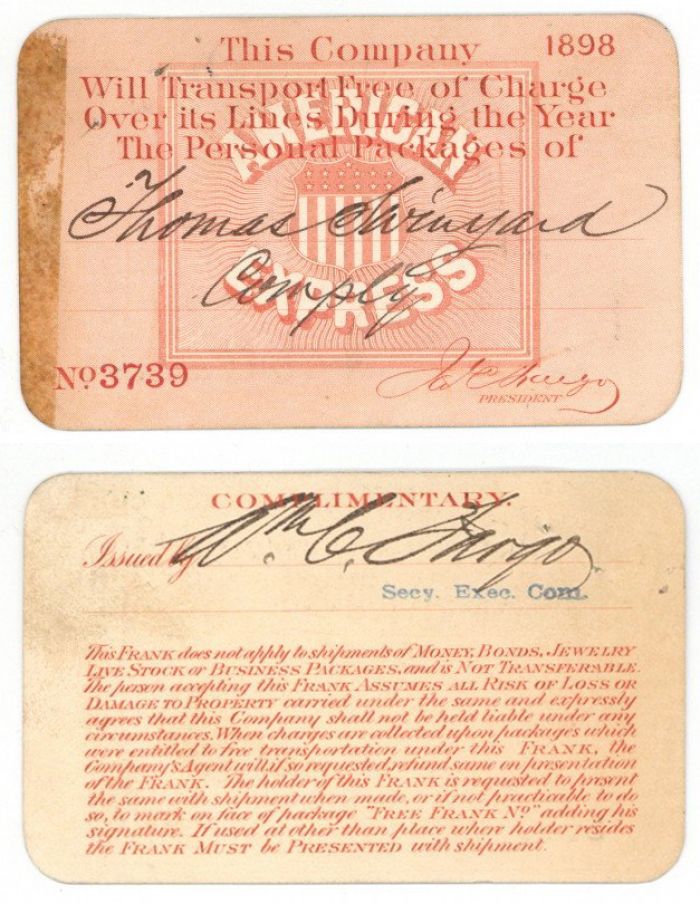 This Company 1898
Will Transport Free of Charge
Over its Lines During the Year
The Personal Packages of
AMERICAN
Thomas Swinyard
EXPRESS
Comply
No 3739
Jas. C. Fargo
PRESIDENT
COMPLIMENTARY.
Issued by Wm. C. Fargo
Secy. Exec. Com.
This FRANK does not apply to shipments of MONEY, BONDS, JEWELRY
LIVE STOCK or BUSINESS PACKAGES, and is NOT TRANSFERABLE.
The person accepting this FRANK ASSUMES ALL RISK OF LOSS OR
DAMAGE TO PROPERTY carried under the same and expressly
agrees that this Company shall not be held liable under any
circumstances. When charges are collected upon packages which
were entitled to free transportation under this FRANK, the
Company's Agent will, if so requested, refund same on presentation
of the FRANK. The holder of this FRANK is requested to present
the same with shipment when made, or if not practicable to do
so, to mark on face of package "FREE FRANK No." adding his
signature. If used at other than place where holder resides
the FRANK MUST be PRESENTED with shipment.